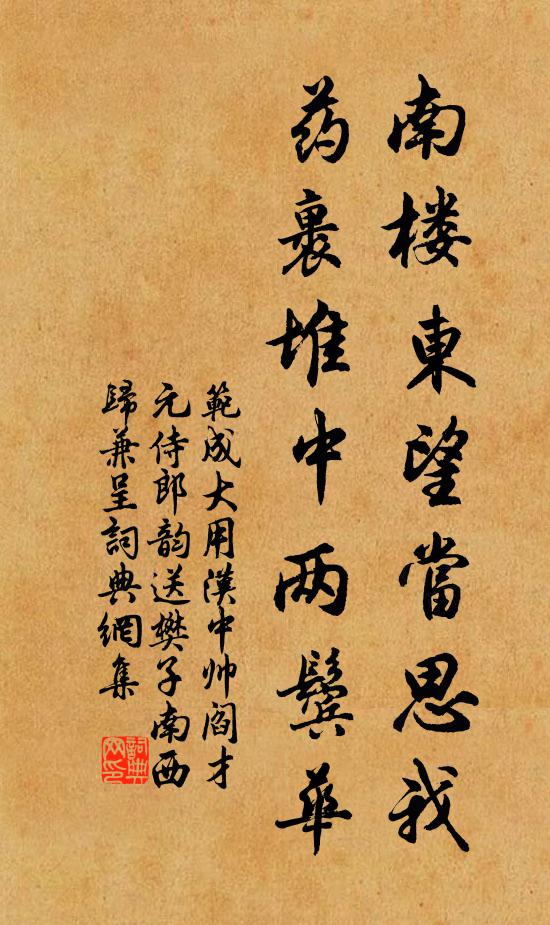 南楼東望當思我
药裹堆中两鬢華
範成大用漢中帅閻才
元侍郎韵送樊子南西
歸兼呈詞典網集
詞典
网印